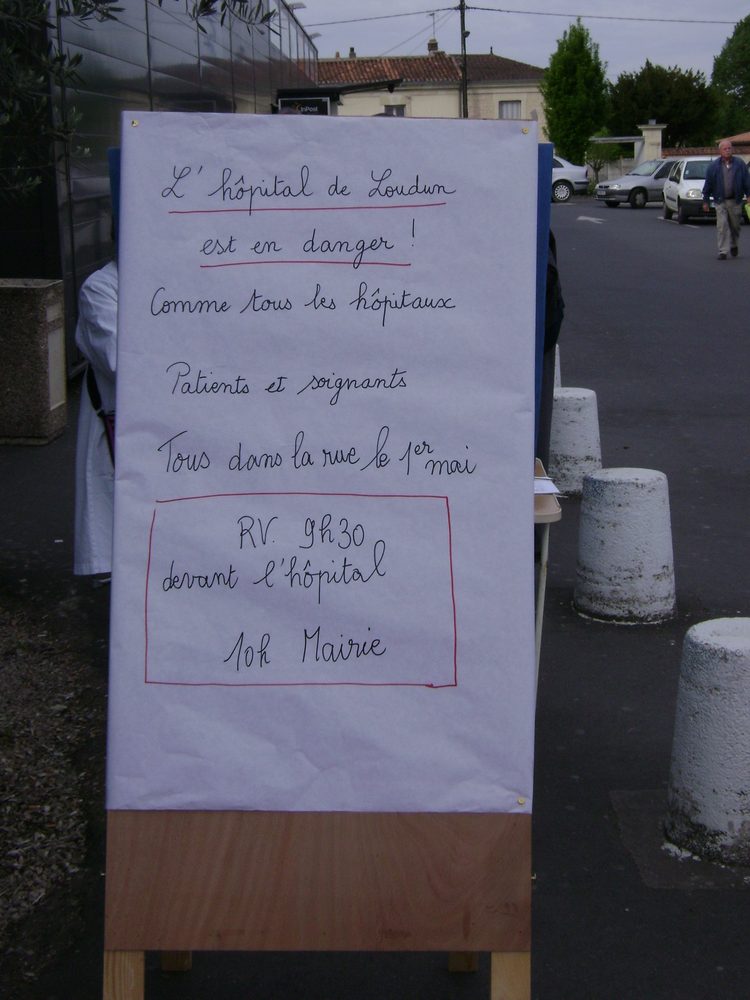 L'hôpital de Loudun
est en danger !
Comme tous les hôpitaux
Patients et soignants
Tous dans la rue le 1er mai
RV. 9h30
devant l'hôpital
10h Mairie